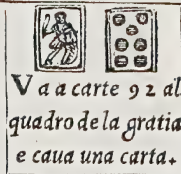 Va a carte 92 al
quadro de la gratia
e caua una carta.